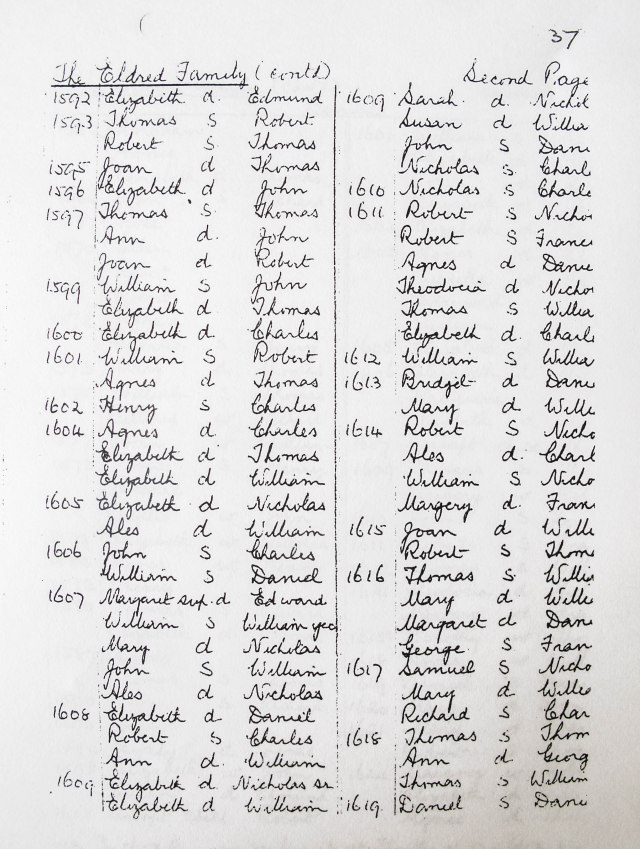 37
The Eldred Family (contd)
Second Page
1592 Elizabeth d. Edmund
1593 Thomas s Robert
Robert s Thomas
1595 Joan d Thomas
1596 Elizabeth d John
1597 Thomas s. Thomas
Ann d. John
Joan d Robert
1599 William s John
Elizabeth d Thomas
1600 Elizabeth d Charles
1601 William s Robert
Agnes d Thomas
1602 Henry s Charles
1604 Agnes d. Charles
Elizabeth d Thomas
Elizabeth d William
1605 Elizabeth d Nicholas
Ales d William
1606 John s Charles
William s Daniel
1607 Margaret sup. d Edward
William s William yeo
Mary d Nicholas
John s William
Ales d Nicholas
1608 Elizabeth d Daniel
Robert s Charles
Ann d William
1609 Elizabeth d Nicholas sr
Elizabeth d William
1609 Sarah. d. Nichol
Susan d Willia
John s Dani
Nicholas s Charl
1610 Nicholas s Charle
1611 Robert s Nicho
Robert s France
Agnes d Danie
Theodocia d Nicho
Thomas s Willia
Elizabeth d. Charl
1612 William s Willia
1613 Bridget d Dani
Mary d Willi
1614 Robert s Nicho
Ales d. Charl
William s Nicho
Margery d. Fran
1615 Joan d Willi
Robert s Thom
1616 Thomas s. Willia
Mary d Willi
Margaret d Dani
George s Fran
1617 Samuel s Nicho
Mary d. Willi
Richard s Char
1618 Thomas s Thom
Ann d Georg
Thomas s William
1619 Daniel s Dani